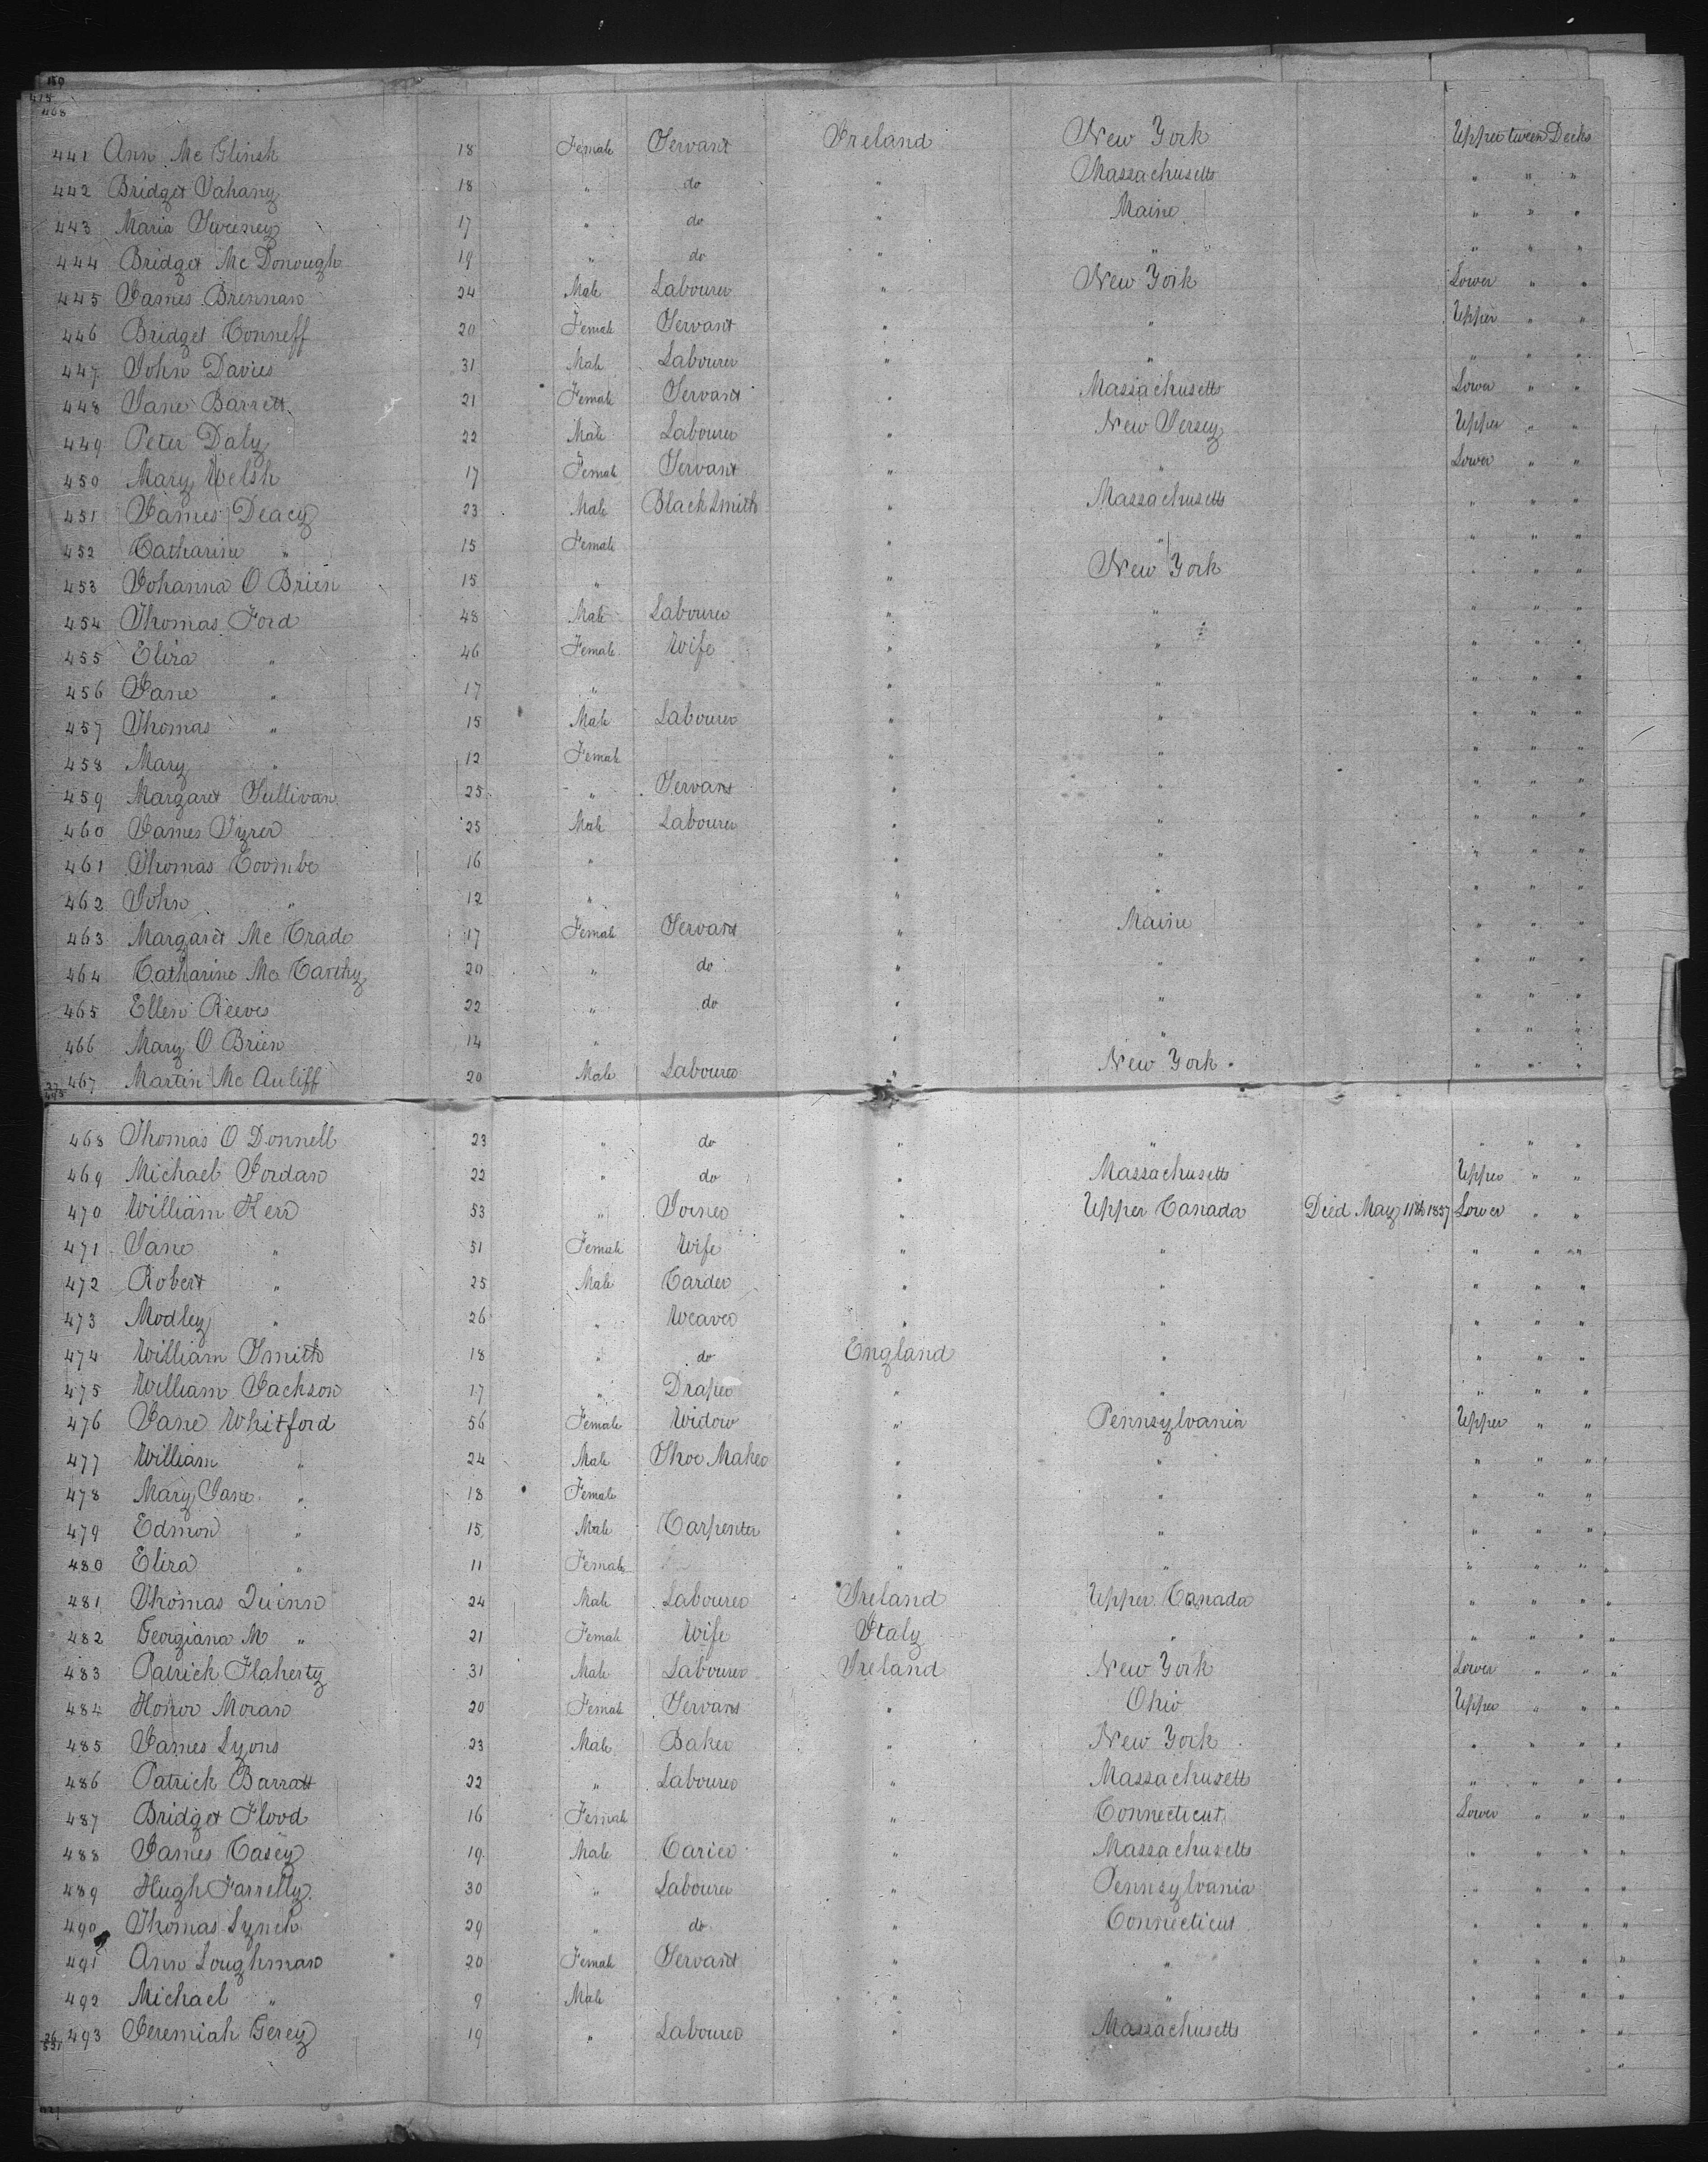 159
475
468
441 Ann Mc Glinsh 18 Female Servant Ireland New York Upper tween Decks
442 Bridget Fahany 18 " do " Massachusetts " " "
443 Maria Sweeney 17 " do " Maine " " "
444 Bridget Mc Donough 19 " do " " " " "
445 James Brennan 24 Male Labourer " New York Lower " "
446 Bridget Conneff 20 Female Servant " " Upper " "
447 John Davies 31 Male Labourer " " " " "
448 Jane Barrett 21 Female Servant " Massachusetts Lower " "
449 Peter Daly 22 Male Labourer " New Jersey Upper " "
450 Mary Welsh 17 Female Servant " " Lower " "
451 James Deacy 23 Male Black Smith " Massachusetts " " "
452 Catharine " 15 Female " " " " "
453 Johanna O Brien 15 " " New York " " "
454 Thomas Ford 48 Male Labourer " " " " "
455 Eliza " 46 Female Wife " " " " "
456 Jane " 17 " " " " " "
457 Thomas " 15 Male Labourer " " " " "
458 Mary " 12 Female " " " " "
459 Margaret Sullivan 25 " Servant " " " " "
460 James Vizrer 25 Male Labourer " " " " "
461 Thomas Coombe 16 " " " " " "
462 John " 12 " " " " " "
463 Margaret Mc Crade 17 Female Servant " Maine " " "
464 Catharine Mc Carthy 20 " do " " " " "
465 Ellen Reeves 22 " do " " " " "
466 Mary O Brien 14 " " " " " "
467 Martin Mc Auliff 20 Male Labourer " New York " " "
468 Thomas O Donnell 23 " do " " " " "
469 Michael Jordan 22 " do " Massachusetts Upper " "
470 William Kerr 53 " Joiner " Upper Canada Died May 11th 1857 Lower " "
471 Jane " 51 Female Wife " " " " "
472 Robert " 25 Male Carder " " " " "
473 Modley " 26 " Weaver " " " " "
474 William Smith 18 " do England " " " "
475 William Jackson 17 " Draper " " " " "
476 Jane Whitford 56 Female Widow " Pennsylvania Upper " "
477 William " 24 Male Shoe Maker " " " " "
478 Mary Jane " 18 Female " " " " "
479 Edmon " 15 Male Carpenter " " " " "
480 Eliza " 11 Female " " " " "
481 Thomas Quinn 24 Male Labourer Ireland Upper Canada " " " "
482 Georgiana M " 21 Female Wife Italy " " " " "
483 Patrick Flaherty 31 Male Labourer Ireland New York Lower " " "
484 Honor Moran 20 Female Servant " Ohio Upper " " "
485 James Lyons 23 Male Baker " New York " " " "
486 Patrick Barratt 22 " Labourer " Massachusetts " " " "
487 Bridget Flood 16 Female " Connecticut Lower " " "
488 James Casey 19 Male Carier " Massachusetts " " " "
489 Hugh Farrelly 30 " Labourer " Pennsylvania " " " "
490 Thomas Lynch 29 " do " Connecticut " " " "
491 Ann Loughman 20 Female Servant " " " " " "
492 Michael " 9 Male " " " " " "
493 Jeremiah Gerey 19 " Labourer " Massachusetts " " " "